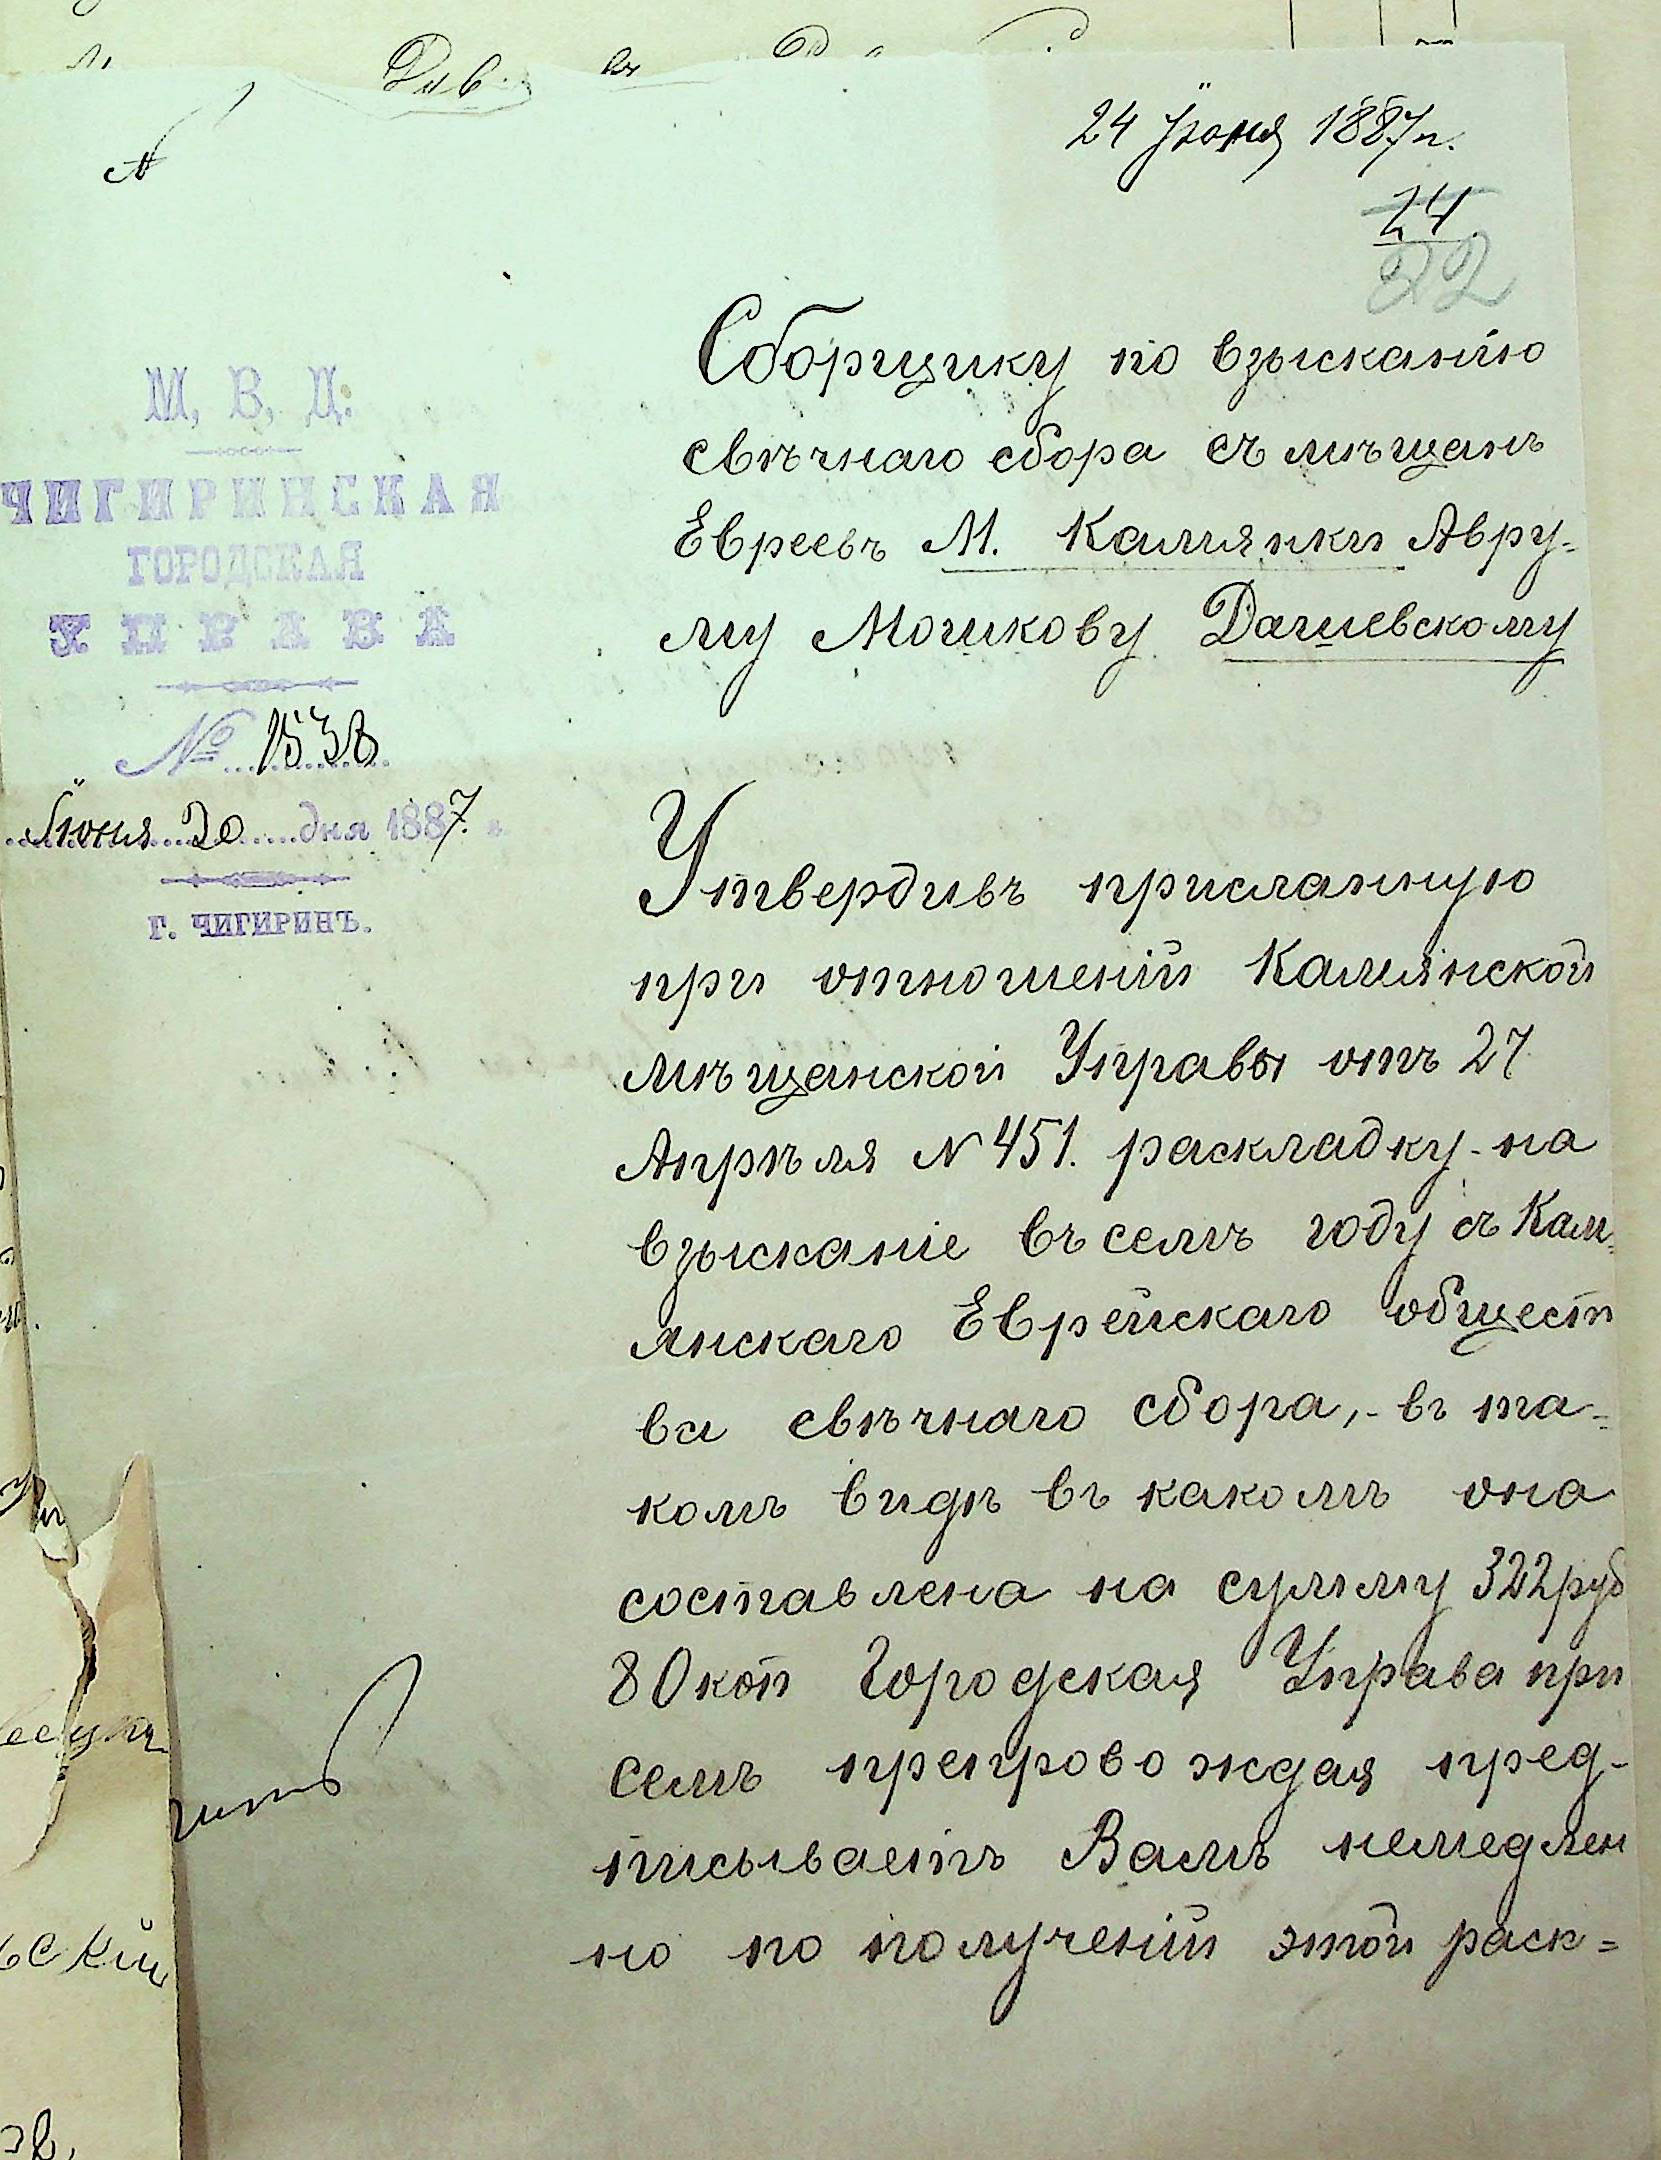 24 Іюня 1887 г.
24
22
М. В. Д.
ЧИГИРИНСКАЯ
ГОРОДСКАЯ
УПРАВА
№ 1538
Іюня 20 дня 1887 г.
Г. ЧИГИРИНЪ.
Сборщику по взысканію
свѣчнаго сбора съ мѣщанъ
Евреевъ М. Камянки Авру=
му Мошкову Дашевскому
Утвердивъ присланную
при отношеніи Камянской
мѣщанской Управы отъ 27
Апрѣля № 451. раскладку на
взысканіе въ семъ году съ Кам=
янскаго Еврейскаго общест
ва свѣчнаго сбора, въ та=
комъ видѣ въ какомъ она
составлена на сумму 322 руб
80 коп Городская Управа при
семъ препровождая пред-
писываетъ Вамъ немедлен
но по полученіи этой раск=